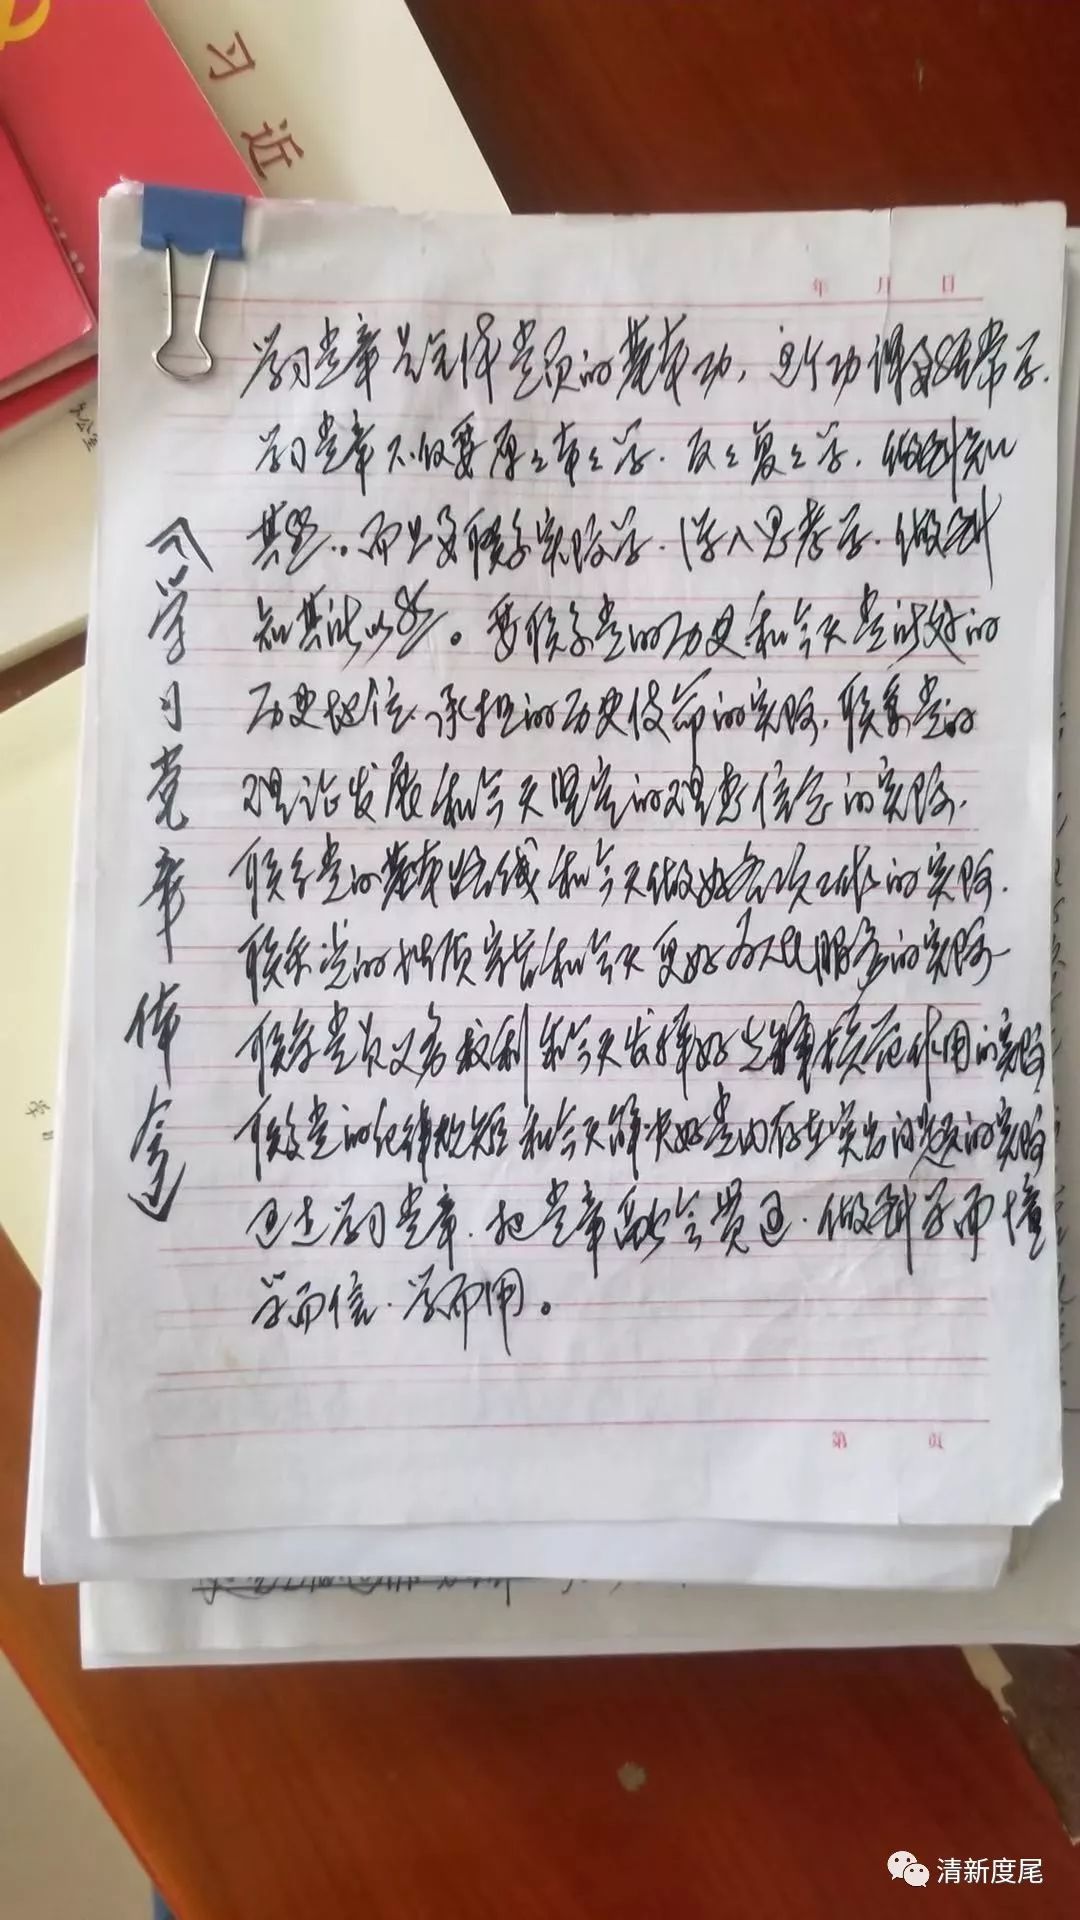 习近
办公室
年 月 日
《学习党章体会》
学习党章是全体党员的基本功，这个功课要经常学.
学习党章不仅要原原本本学.反反复复学.做到知
其然.而且要联系实际学.深入思考学.做到
知其所以然。要联系党的历史和今天党所处的
历史地位.承担的历史使命的实际.联系党的
理论发展和今天坚定的理想信念的实际.
联系党的基本路线和今天做好各项工作的实际.
联系党的性质宗旨和今天更好为人民服务的实际
联系党员义务权利和今天发挥好先锋模范作用的实际
联系党的纪律规矩和今天解决好党内存在突出问题的实际
通过学习党章.把党章融会贯通.做到学而懂
学而信.学而用。
第 页
清新度尾